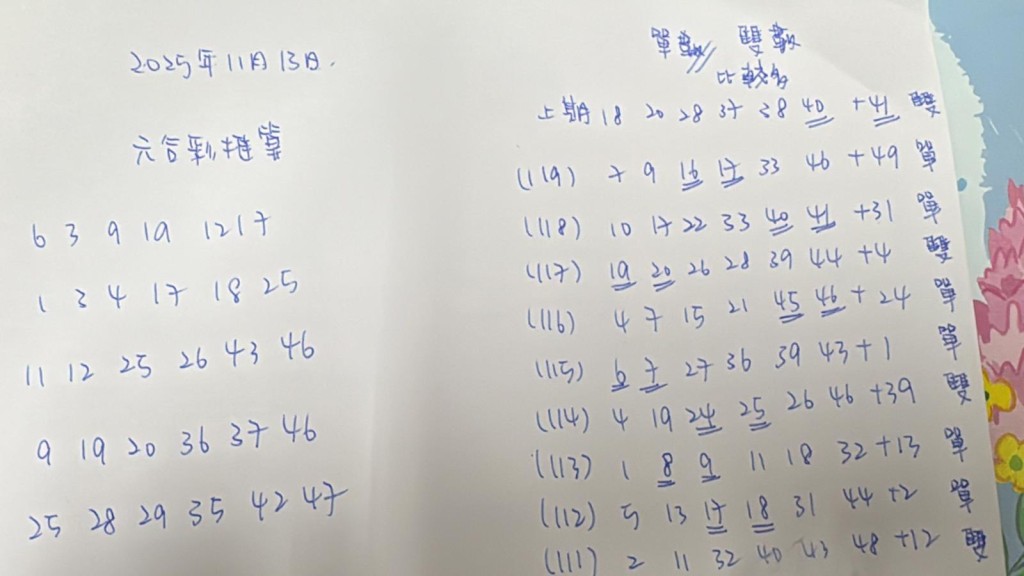 2025年11月13日.
六合彩推算
6 3 9 19 12 17
1 3 4 17 18 25
11 12 25 26 43 46
9 19 20 36 37 46
25 28 29 35 42 47
單數// 雙數
比較多
上期 18 20 28 37 38 40 +41 雙
(119) 7 9 16 17 33 46 +49 單
(118) 10 17 22 33 40 41 +31 單
(117) 19 20 26 28 39 44 +4 雙
(116) 4 7 15 21 45 46 + 24 單
(115) 6 7 27 36 39 43 +1 單
(114) 4 19 24 25 26 46 +39 雙
(113) 1 8 9 11 18 32 +13 單
(112) 5 13 17 18 31 44 +2 單
(111) 2 11 32 40 43 48 +12 雙